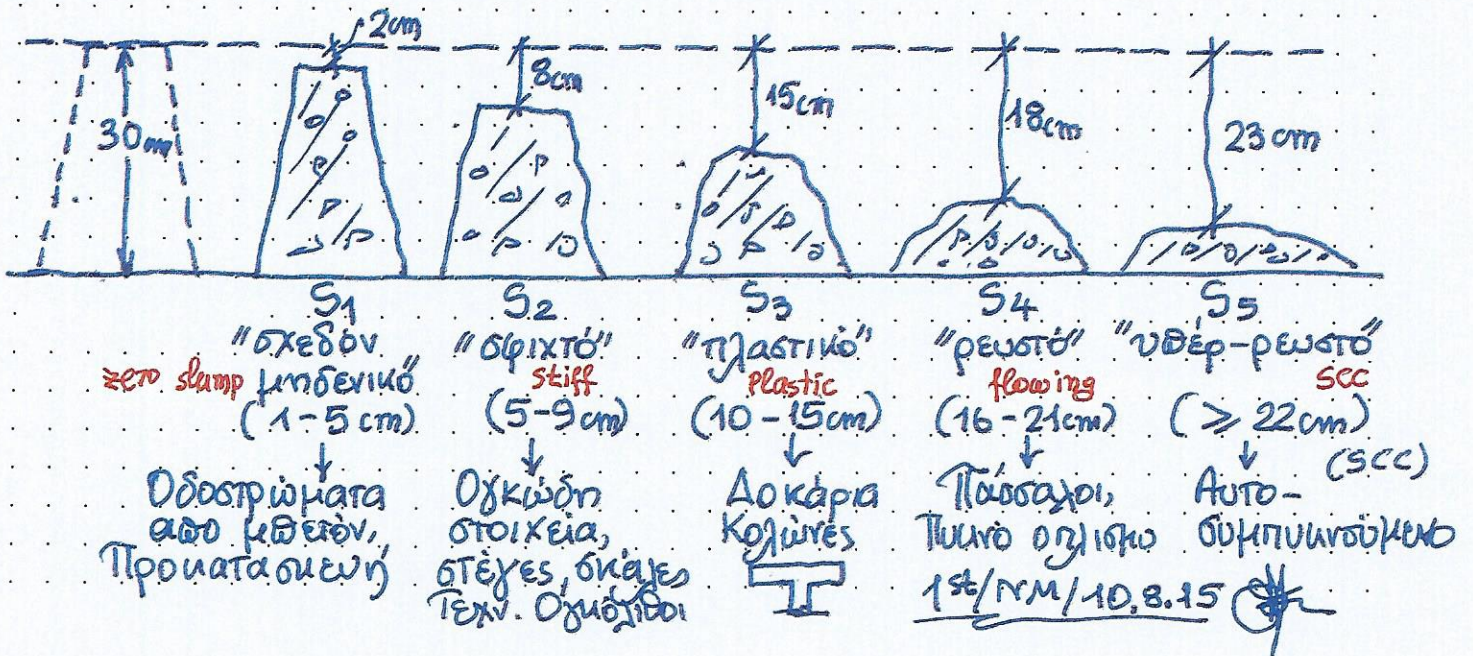 2cm
30cm
8cm
15cm
18cm
23cm
S1
"σχεδόν
μηδενικό"
zero slump
(1-5cm)
Οδοστρώματα
από μπετόν,
Προκατασκευή
S2
"σφιχτό"
stiff
(5-9cm)
Ογκώδη
στοιχεία,
στέγες, σκάλες
Τεχν. Ογκόλιθοι
S3
"πλαστικό"
Plastic
(10-15cm)
Δοκάρια
Κολώνες
S4
"ρευστό"
flowing
(16-21cm)
Πάσσαλοι,
Πυκνό οπλισμο
S5
"υπέρ-ρευστό"
SCC
(≥ 22cm)
(SCC)
Αυτο-
συμπυκνούμενο
1st/NM/10.8.15